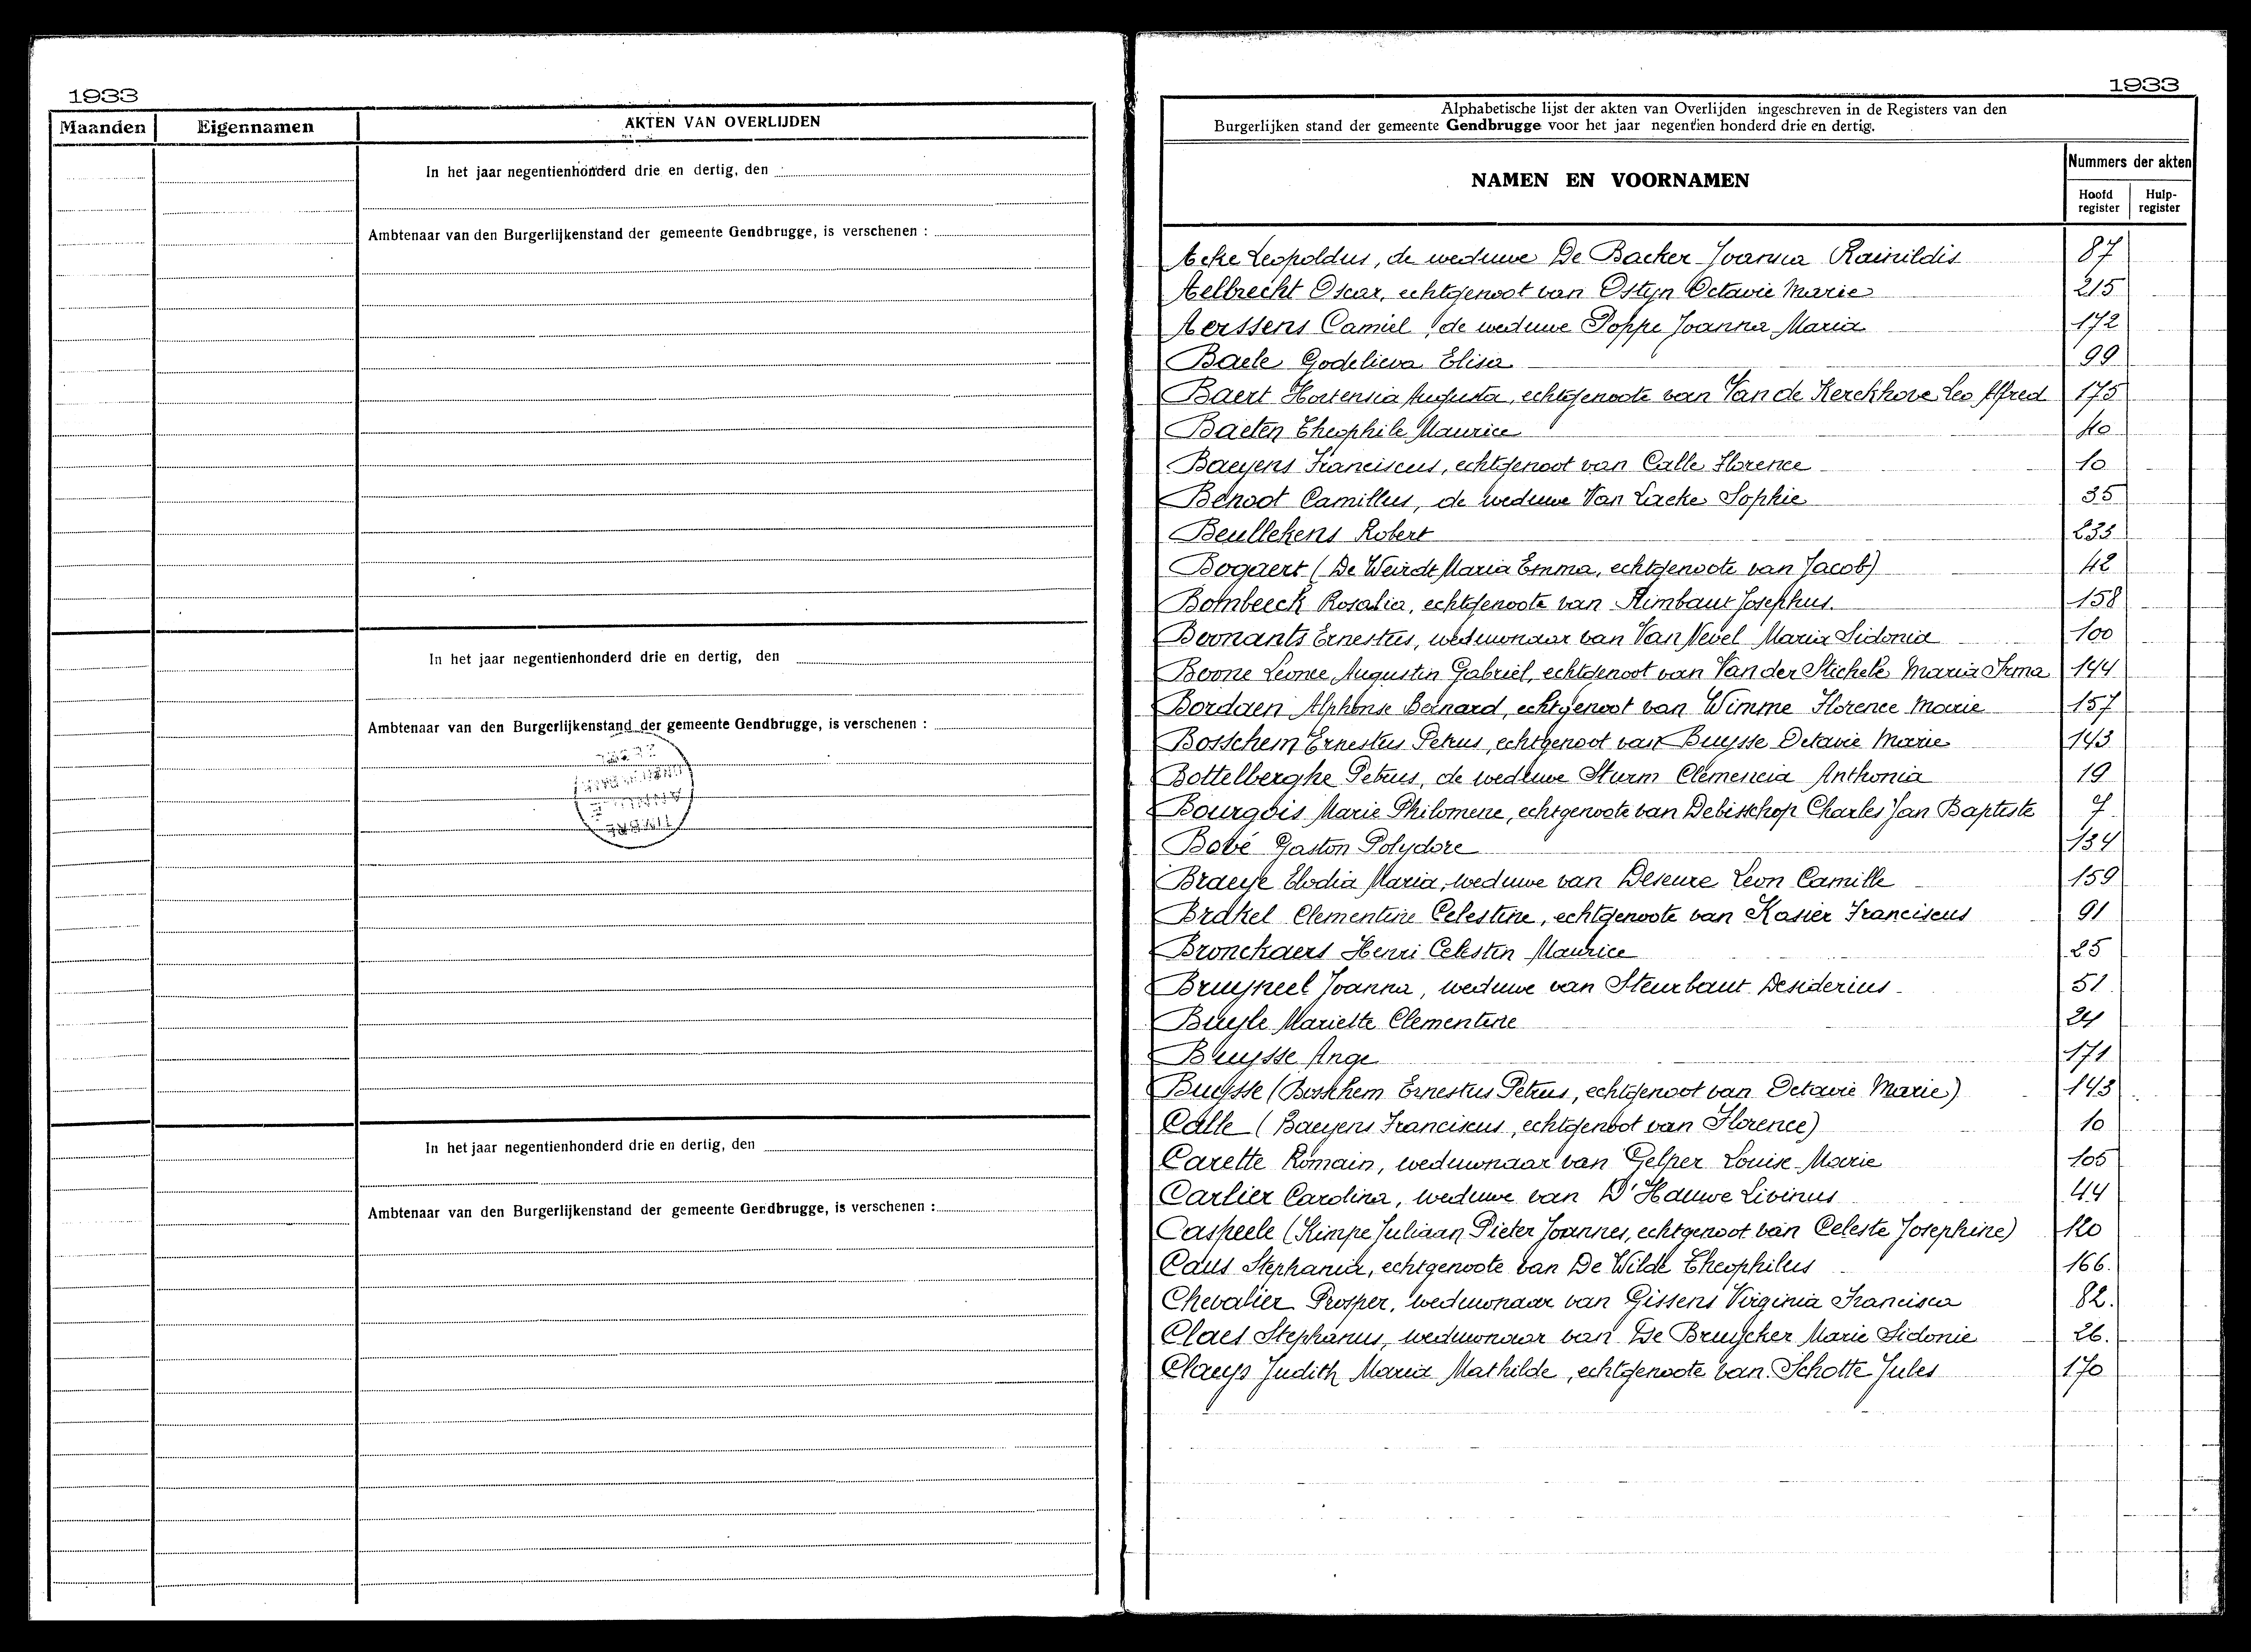 1933
Maanden Eigennamen AKTEN VAN OVERLIJDEN
In het jaar negentienhonderd drie en dertig, den
Ambtenaar van den Burgerlijkenstand der gemeente Gendbrugge, is verschenen :
In het jaar negentienhonderd drie en dertig, den
Ambtenaar van den Burgerlijkenstand der gemeente Gendbrugge, is verschenen :
In het jaar negentienhonderd drie en dertig, den
Ambtenaar van den Burgerlijkenstand der gemeente Gendbrugge, is verschenen :
1933
Alphabetische lijst der akten van Overlijden ingeschreven in de Registers van den
Burgerlijken stand der gemeente Gendbrugge voor het jaar negentien honderd drie en dertig.
NAMEN EN VOORNAMEN
Nummers der akten
Hoofd register
Hulp-register
Acke Leopoldus, de weduwe De Backer Joanna Rainildis 87
Aelbrecht Oscar, echtgenoot van Ostyn Octavie Marie 215
Aerssens Camiel, de weduwe Poppe Joanna Maria 172
Baele Godelieva Elisa 99
Baert Hortensia Augusta, echtgenoote van Van de Kerckhove Leo Alfred 175
Baeten Theophile Maurice 40
Baeyens Franciscus, echtgenoot van Calle Florence 10
Benoot Camillus, de weduwe Van Lacke Sophie 35
Beullekens Robert 233
Bogaert (De Weirdt Maria Emma, echtgenoote van Jacob) 42
Bombeeck Rosalia, echtgenoote van Rimbaut Josephus. 158
Boonants Ernestus, weduwnaar van Van Nevel Maria Sidonia 100
Boone Leonce Augustin Gabriel, echtgenoot van Van der Stichele Maria Irma 144
Bordaen Alphonse Bernard, echtgenoot van Wimme Florence Marie 157
Bosschem Ernestus Petrus, echtgenoot van Buysse Octavie Marie 143
Bottelberghe Petrus, de weduwe Sturm Clemencia Anthonia 19
Bourgois Marie Philomene, echtgenoote van Debisschop Charles Jan Baptiste 7
Bové Gaston Polydore 134
Braeye Elodia Maria, weduwe van Deseure Leon Camille 159
Brakel Clementine Celestine, echtgenoote van Kasier Franciscus 91
Bronckaers Henri Celestin Maurice 25
Bruyneel Joanna, weduwe van Steurbaut Desiderius 51
Buyle Mariette Clementine 24
Buysse Ange 171
Buysse (Bosschem Ernestus Petrus, echtgenoot van Octavie Marie) 143
Calle (Baeyens Franciscus, echtgenoot van Florence) 10
Carette Romain, weduwnaar van Gelper Louise Marie 105
Carlier Carolina, weduwe van D'Hauwe Livinus 44
Caspeele (Kimpe Juliaan Pieter Joannes, echtgenoot van Celeste Josephine) 120
Caus Stephania, echtgenoote van De Wilde Theophilus 166.
Chevalier Prosper, weduwnaar van Gissens Virginia Francisca 82.
Claes Stephanus, weduwnaar van De Bruycker Marie Sidonie 26.
Claeys Judith Maria Mathilde, echtgenoote van Schotte Jules 170